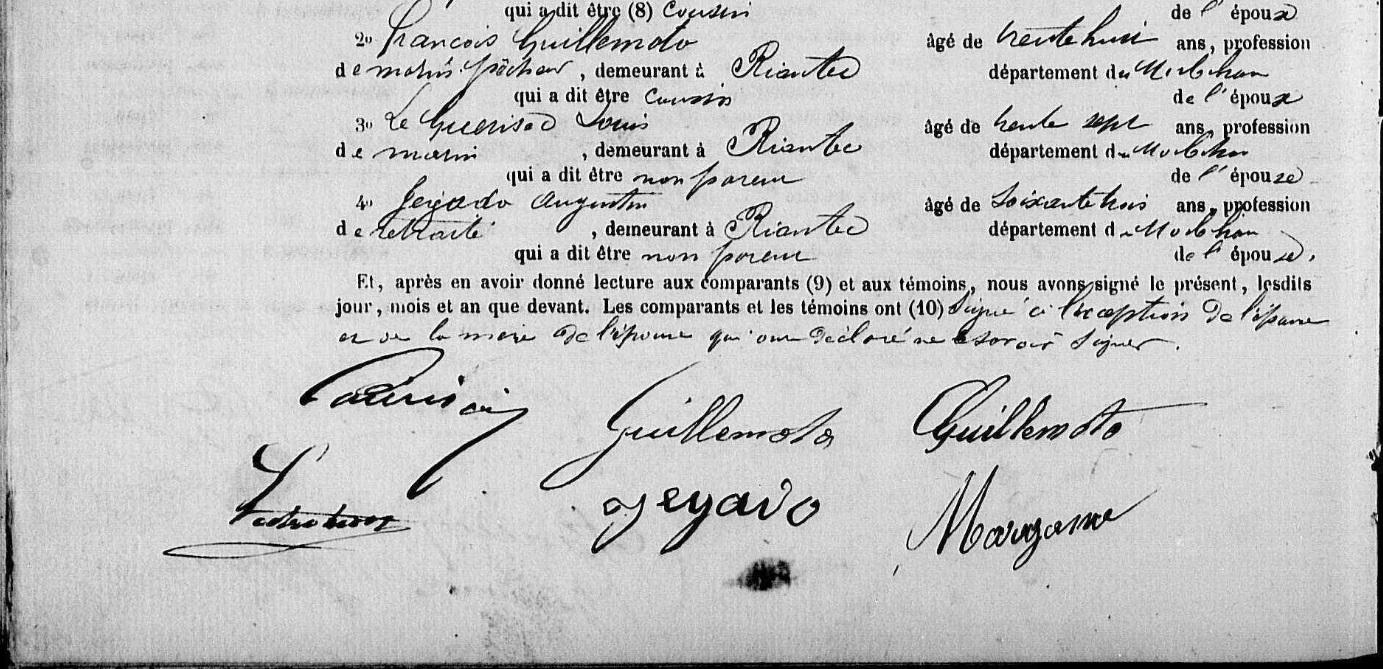 qui a dit être (8) Cousin de l'époux
2º François Guillemoto âgé de trente huit ans, profession
de marin pêcheur, demeurant à Riantec département du Morbihan
qui a dit être Cousin de l'époux
3º Le Guerisac Louis âgé de trente sept ans, profession
de marin, demeurant à Riantec département du Morbihan
qui a dit être non parent de l'épouse
4º Jégado Augustin âgé de soixante trois ans, profession
de retraité, demeurant à Riantec département du Morbihan
qui a dit être non parent de l'épouse.
Et, après en avoir donné lecture aux comparants (9) et aux témoins, nous avons signé le présent, lesdits
jour, mois et an que devant. Les comparants et les témoins ont (10) signé à l'exception de l'épouse
et de la mère de l'épouse qui ont déclaré ne savoir signer.
Guillemoto Guillemoto
Jegado